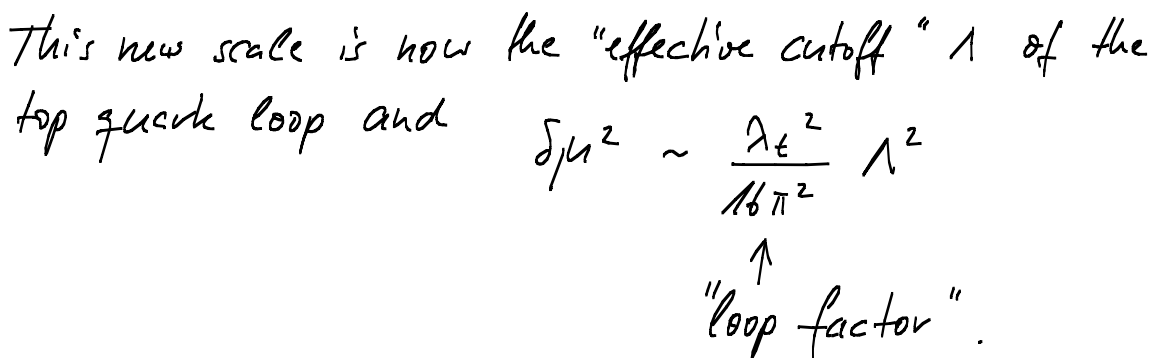 This new scale is now the "effective cutoff" Λ of the
top quark loop and δμ² ~ λₜ²/16π² Λ²
↑
"loop factor".